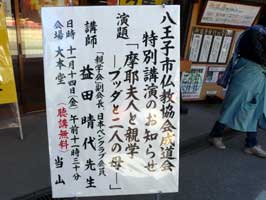 八王子市仏教協会成道会
特別講演のお知らせ
演題「摩耶夫人と親学
―ブッダと二人の母―」
講師「親学会副会長、日本ペンクラブ会員
益田晴代先生
日時十一月十四日(金)午前十一時三十分
会場大本堂(聴講無料)当山